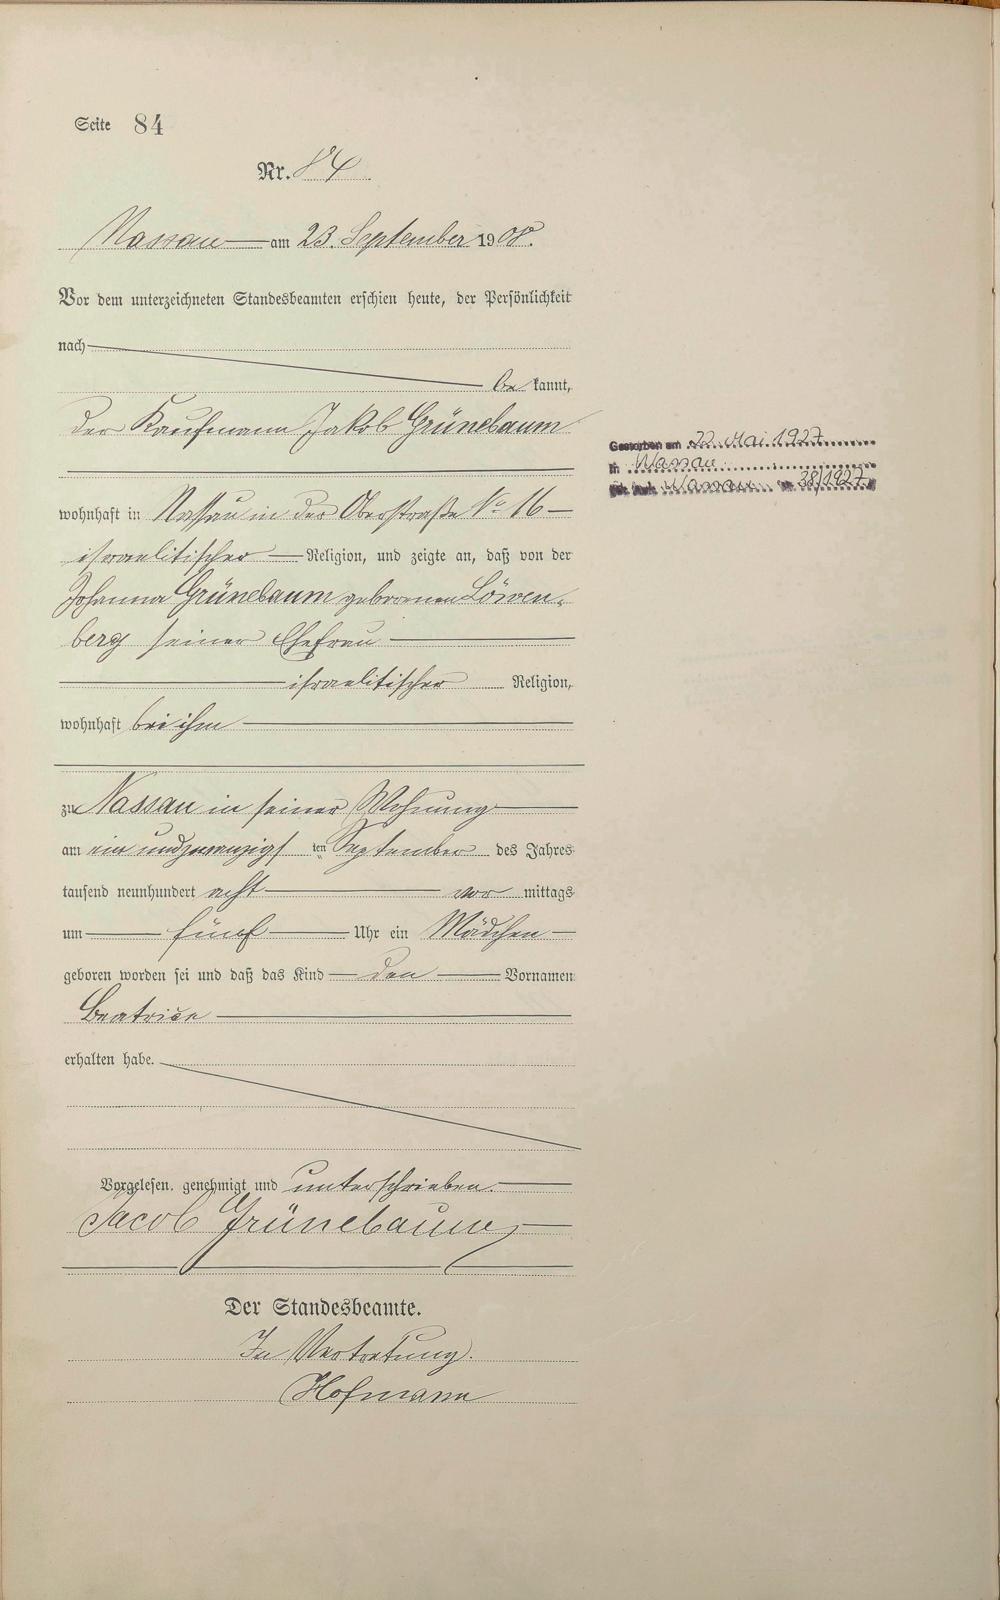 Seite 84
Nr. 84
Nassau am 23. September 1908.
Vor dem unterzeichneten Standesbeamten erschien heute, der Persönlichkeit
nach
be kannt,
der Kaufmann Jakob Grünebaum
Gestorben am 22. Mai 1927
in Nassau
Nassau 38/1927
wohnhaft in Nassau in der Oberstraße No 16
israelitischer Religion, und zeigte an, daß von der
Johanna Grünebaum geborenen Löwen-
berg seiner Ehefrau
israelitischer Religion,
wohnhaft bei ihm
zu Nassau in seiner Wohnung
am ein und zwanzigsten September des Jahres
tausend neunhundert acht vor mittags
um fünf Uhr ein Mädchen
geboren worden sei und daß das Kind den Vornamen
Beatrice
erhalten habe.
Vorgelesen, genehmigt und unterschrieben.
Jacob Grünebaum
Der Standesbeamte.
In Vertretung.
Hofmann